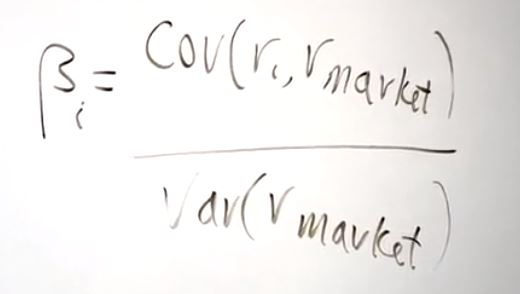 βᵢ = Cov(rᵢ, r market)
Var(r market)